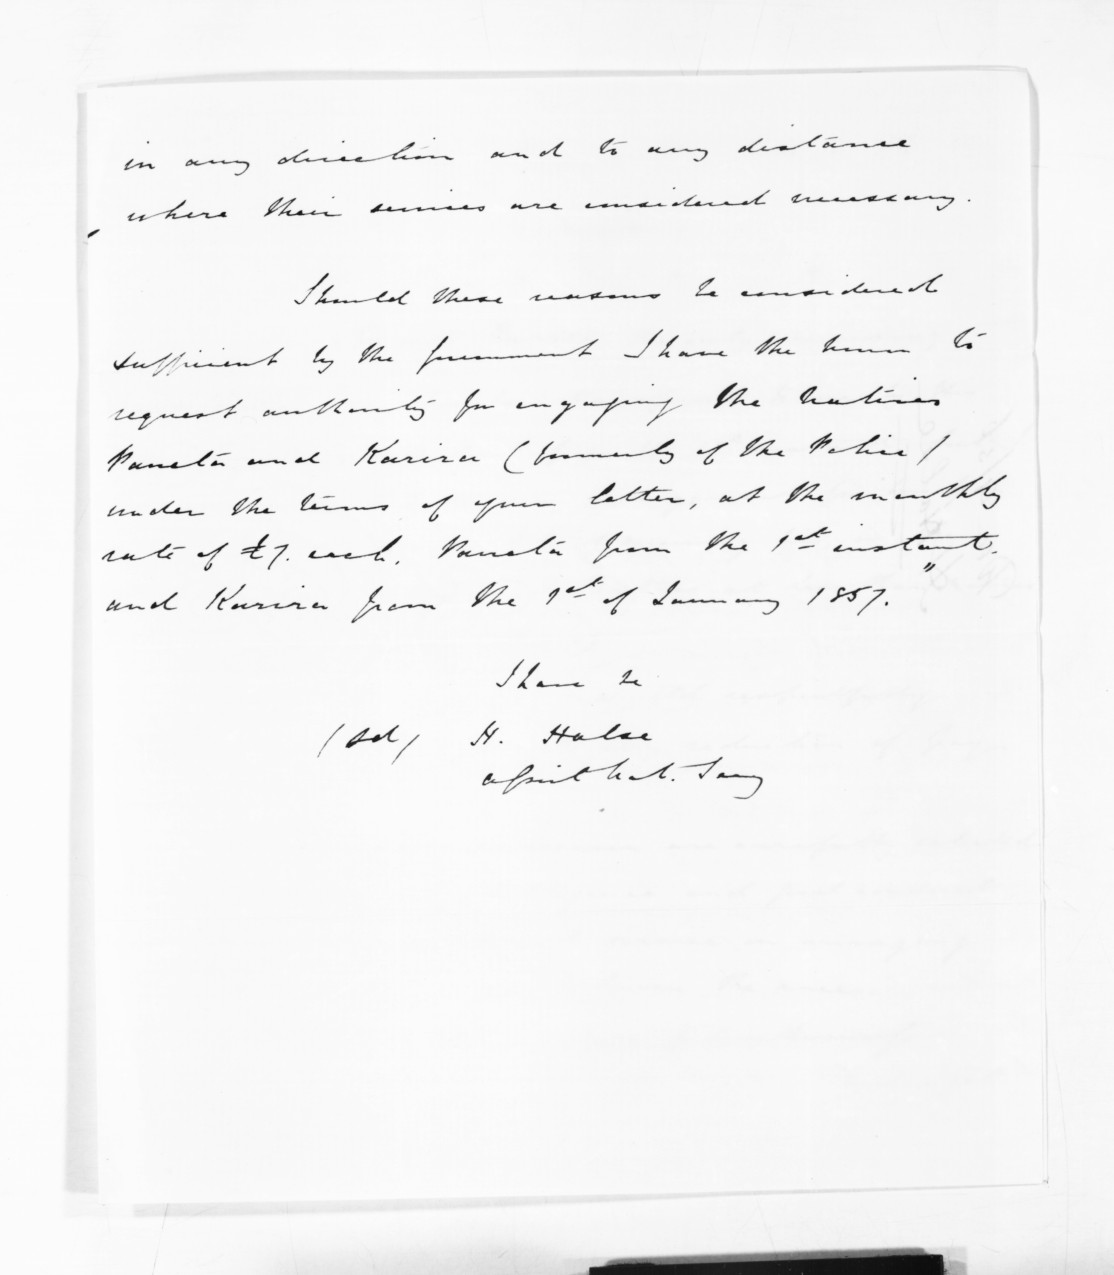 in any direction and to any distance
where their services are considered necessary.
Should these reasons be considered
sufficient by the Government I have the honor to
request authority for engaging the Natives
and Karira (formerly of the Police)
under the terms of your letter, at the monthly
rate of £7. each, from the 1st instant.
and Karira from the 1st of January 1857."
I have &c
(sd) H. Halse
Assist Nat. Secy